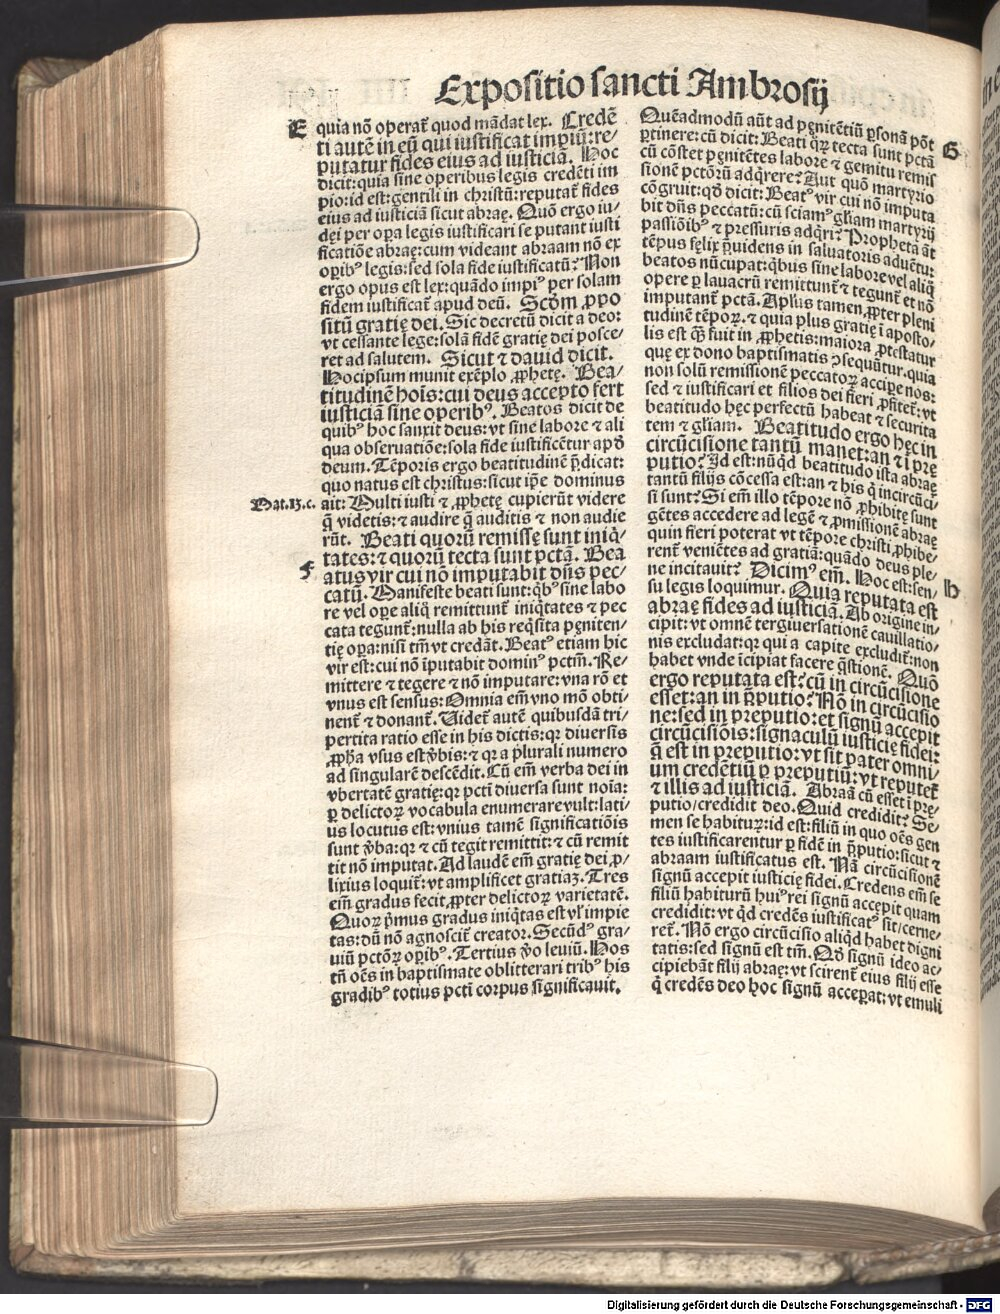 Expositio sancti Ambrosij
E
quia nō oꝑat᷑ quod mādat lex. Credē
ti autē in eū qui iustificat impiū: re/
putatur fides eius ad iusticiā. Hoc
dicit: quia sine operibus legis credēti im
pio: id est: gentili in christū: reputat᷑ fides
eius ad iusticiā sicut abraę. Quō ergo iu/
dęi per oꝑa legis iustificari se putant iusti
ficatiōe abraę: cum videant abraam nō ex
oꝑibꝰ legis: sed sola fide iustificatū? Non
ergo opus est lex: quādo impiꝰ per solam
fidem iustificat᷑ apud deū. Scḋm ꝓpo
sitū gratię dei. Sic decretū dicit a deo:
vt cessante lege: solā fidē gratię dei posce/
ret ad salutem. Sicut ⁊ dauid dicit.
Hocipsum munit exēplo ꝓphetę. Bea/
titudinē hoīs: cui deus accepto fert
iusticiā sine operibꝰ. Beatos dicit de
quibꝰ hoc sanxit deus: vt sine labore ⁊ ali
qua obseruatiōe: sola fide iustificētur apḋ
deum. Tēporis ergo beatitudinē p̄dicat:
quo natus est christus: sicut ip̄e dominus
Mat.13.c.
ait: Multi iusti ⁊ ꝓphetę cupierūt videre
q̄ videtis: ⁊ audire q̄ auditis ⁊ non audie
rūt. Beati quorū remissę sunt iniq̇/
tates: ⁊ quorū tecta sunt pctā. Bea
F
atus vir cui nō imputabit dn̄s pec/
catū. Manifeste beati sunt: q̇bꝰ sine labo
re vel oꝑe aliq̇ remittunt᷑ iniq̇tates ⁊ pec
cata tegunt᷑: nulla ab his req̇sita pęniten/
tię oꝑa: nisi tm̄ vt credāt. Beatꝰ etiam hic
vir est: cui nō īputabit dominꝰ pctm̄. Re/
mittere ⁊ tegere ⁊ nō imputare: vna rō et
vnus est sensus: Omnia em̄ vno mō obti/
nent᷑ ⁊ donant᷑. Videt᷑ autē quibusdā tri/
pertita ratio esse in his dictis: qꝛ diuersis
ꝓpha vsus est v̄bis: ⁊ qꝛ a plurali numero
ad singularē descēdit. Cū em̄ verba dei in
vbertatē gratię: qꝛ pcti diuersa sunt noīa:
ꝑ delictoꝝ vocabula enumerare vult: lati/
us locutus est: vnius tamē significatiōis
sunt v̄ba: qꝛ ⁊ cū tegit remittit: ⁊ cū remit
tit nō imputat. Ad laudē em̄ gratię dei ꝓ/
lixius loquit᷑: vt amplificet gratiaꝫ. Tres
em̄ gradus fecit ꝓpter delictoꝝ varietatē.
Quoꝝ p̄mus gradus iniq̇tas est vl᷑ impie
tas: dū nō agnoscit᷑ creator. Secūdꝰ gra/
uiū pctōꝝ oꝑibꝰ. Tertius v̄o leuiū. Hos
tn̄ oēs in baptismate oblitterari tribꝰ his
gradibꝰ totius pcti corpus significauit.
Quēadmodū aūt ad pęnitētiū ꝑsonā pōt
G
ꝑtinere: cū dicit: Beati q̇ꝝ tecta sunt pctā
cū cōstet pęnitētes labore ⁊ gemitu remis
sionē pctōrū adq̇rere? Aut quō martyrio
cōgruit: qḋ dicit: Beatꝰ vir cui nō imputa
bit dn̄s peccatū: cū sciamꝰ gl̄iam martyrij
passiōibꝰ ⁊ pressuris adq̇ri? Propheta āt
tēpus fęlix p̄uidens in saluatoris aduētu:
beatos nūcupat: q̇bus sine labore vel aliq̇
opere ꝑ lauacrū remittunt᷑ ⁊ tegunt᷑ et nō
imputant᷑ pctā. Aplus tamen ꝓpter pleni
tudinē tēpoꝝ. ⁊ quia plus gratię ī aposto/
lis est q̄̇ fuit in ꝓphetis: maiora ꝓtestatur
quę ex dono baptismatis ꝯsequūtur. quia
non solū remissionē peccatoꝝ accipe nos:
sed ⁊ iustificari et filios dei fieri ꝓfitet᷑: vt
beatitudo hęc perfectū habeat ⁊ securita
tem ⁊ gl̄iam. Beatitudo ergo hęc in
circūcisione tantū manet: an ⁊ ī pre
putio? Id est: nūq̇d beatitudo ista abraę
tantū filijs cōcessa est: an ⁊ his q̇ incircūci/
si sunt? Si em̄ illo tēpore nō ꝓhibitę sunt
gētes accedere ad legē ⁊ ꝓmissionē abraę
quin fieri poterat vt tēpore christi ꝓhibe/
rent᷑ veniētes ad gratiā: quādo deus ple/
ne incitauit? Dicimꝰ em̄. Hoc est: sen/
H
su legis loquimur. Quia reputata est
abraę fides ad iusticiā. Ab origine in/
cipit: vt omnē tergiuersationē cauillatio/
nis excludat: qꝛ qui a capite excludit᷑: non
habet vnde īcipiat facere q̄stionē. Quō
ergo reputata est? cū in circūcisione
esset: an in p̄putio? Nō in circūcisio
ne: sed in preputio: et signū accepit
circūcisiōis: signaculū iusticię fidei:
q̄ est in preputio: vt sit pater omni/
um credētiū ꝑ preputiū: vt reputet᷑
⁊ illis ad iusticiā. Abraā cū esset ī pre/
putio/credidit deo. Quid credidit? Se/
men se habituꝝ: id est: filiū in quo oēs gen
tes iustificarentur ꝑ fidē in p̄putio: sicut ⁊
abraam iustificatus est. Nā circūcisionē
signū accepit iusticię fidei. Credens em̄ se
filiū habiturū huiꝰ rei signū accepit quam
credidit: vt q̇d credēs iustificatꝰ sit/cerne/
ret᷑. Nō ergo circūcisio aliq̇d habet digni
tatis: sed signū est tm̄. Qḋ signū ideo ac/
cipiebāt filij abraę: vt scirent᷑ eius filij esse
q̇ credēs deo hoc signū acceꝑat: vt emuli
Digitalisierung gefördert durch die Deutsche Forschungsgemeinschaft - DFG